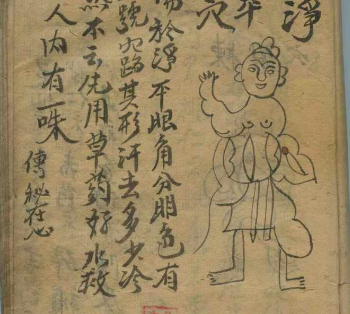 淨
平
穴
傷於淨平眼角分明色有
號以蹈其形汗去多少冷
然不云先用草药好水救
人内有一味
傳秘在心